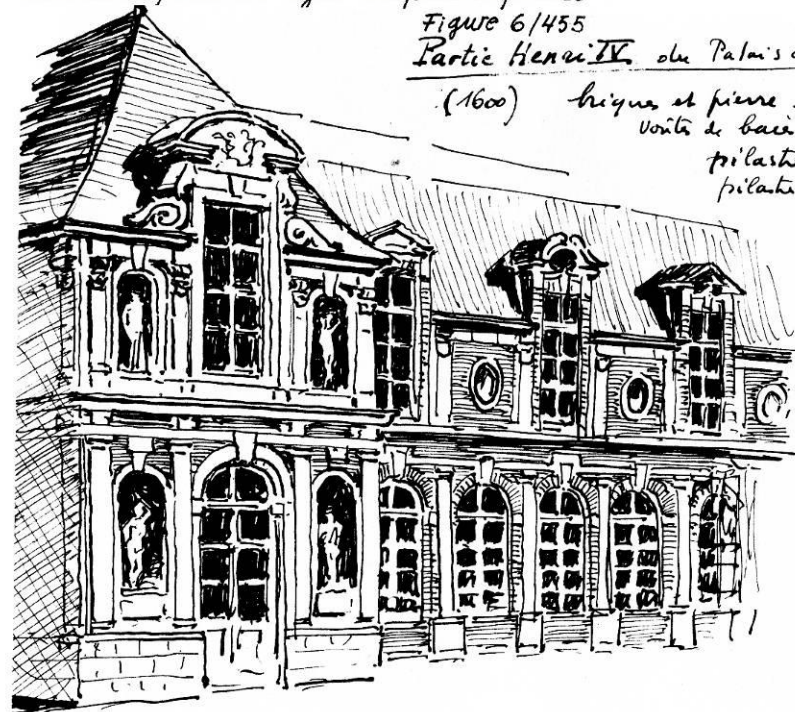 Figure 6/455
Partie Henri IV du Palais
(1600) briques et pierre
voûtes de baies
pilast
pilastre